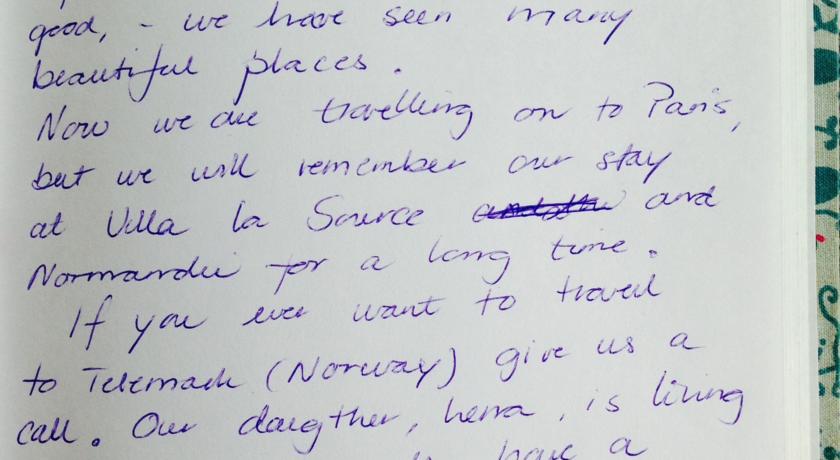 good, - we have seen many
beautiful places.
Now we are travelling on to Paris,
but we will remember our stay
at Villa la Source and
Normandie for a long time.
If you ever want to travel
to Telemark (Norway) give us a
call. Our daugther, , is living
have a